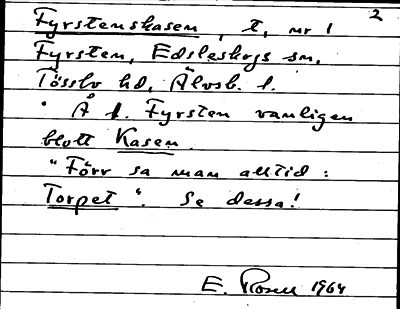 2
Fyrstenskasen, t, nr 1
Fyrsten, Edsleskogs sn,
Tössbo hd, Älvsb. l.
• Å f. Fyrsten vanligen
blott Kasen.
"Förr sa man alltid:
Torpet". Se dessa!
E. Rosell 1964